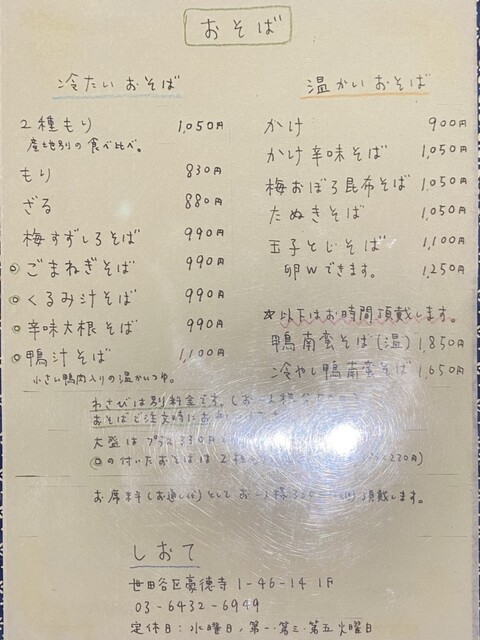 おそば
冷たいおそば
2種もり 1,050円
産地別の食べ比べ。
もり 830円
ざる 880円
梅すずしろそば 990円
◎ごまねぎそば 990円
◎くるみ汁そば 990円
◎辛味大根そば 990円
◎鴨汁そば 1,100円
小さい鴨肉入りの温かいつゆ。
温かいおそば
かけ 900円
かけ辛味そば 1,050円
梅おぼろ昆布そば 1,050円
たぬきそば 1,050円
玉子とじそば 1,100円
卵Wできます。 1,250円
☆以下はお時間頂戴します。
鴨南蛮そば(温) 1,850円
冷やし鴨南蛮そば 1,650円
わさびは別料金です。
おそばご注文時にお
大盛はプラス330円
◎の付いたおそばは2種 230円)
お席料(お通し代)としてお一人様 頂戴します。
しおて
世田谷区豪徳寺1-46-14 1F
03-6432-6949
定休日:水曜日,第一・第三・第五火曜日